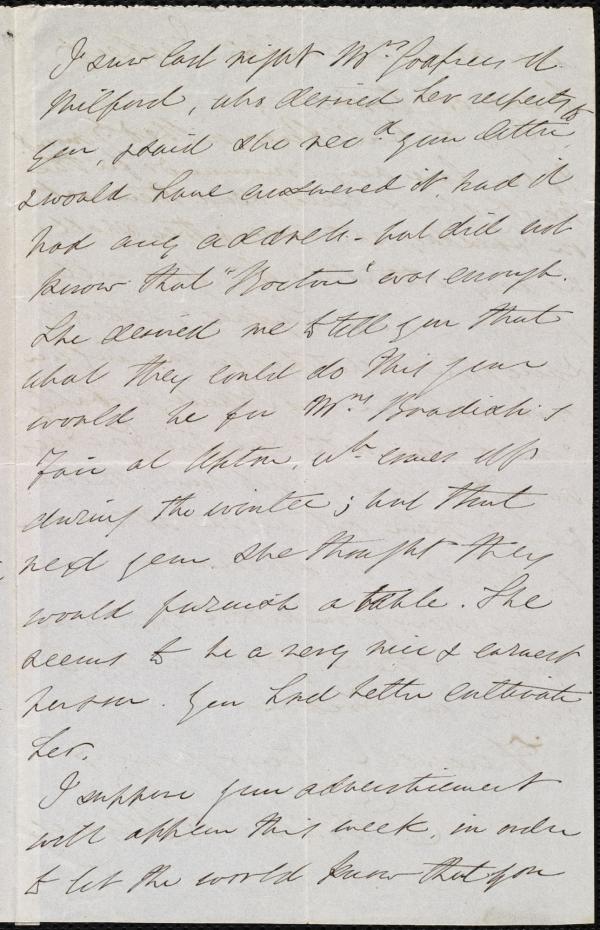 I saw last night Mrs. of
Milford, who desired her respects to
you, & said she rec'd your letter,
& would have answered it, had it
had any address - but did not
know that "Boston" was enough.
She desired me to tell you that
what they could do this year
would be for Mrs. Bradish's
Fair at Upton, wh. comes off
during the winter; but that
next year she thought they
would furnish a table. She
seems to be a very nice & earnest
person. You had better cultivate
her.
I suppose your advertisement
will appear this week, in order
to let the world know that you